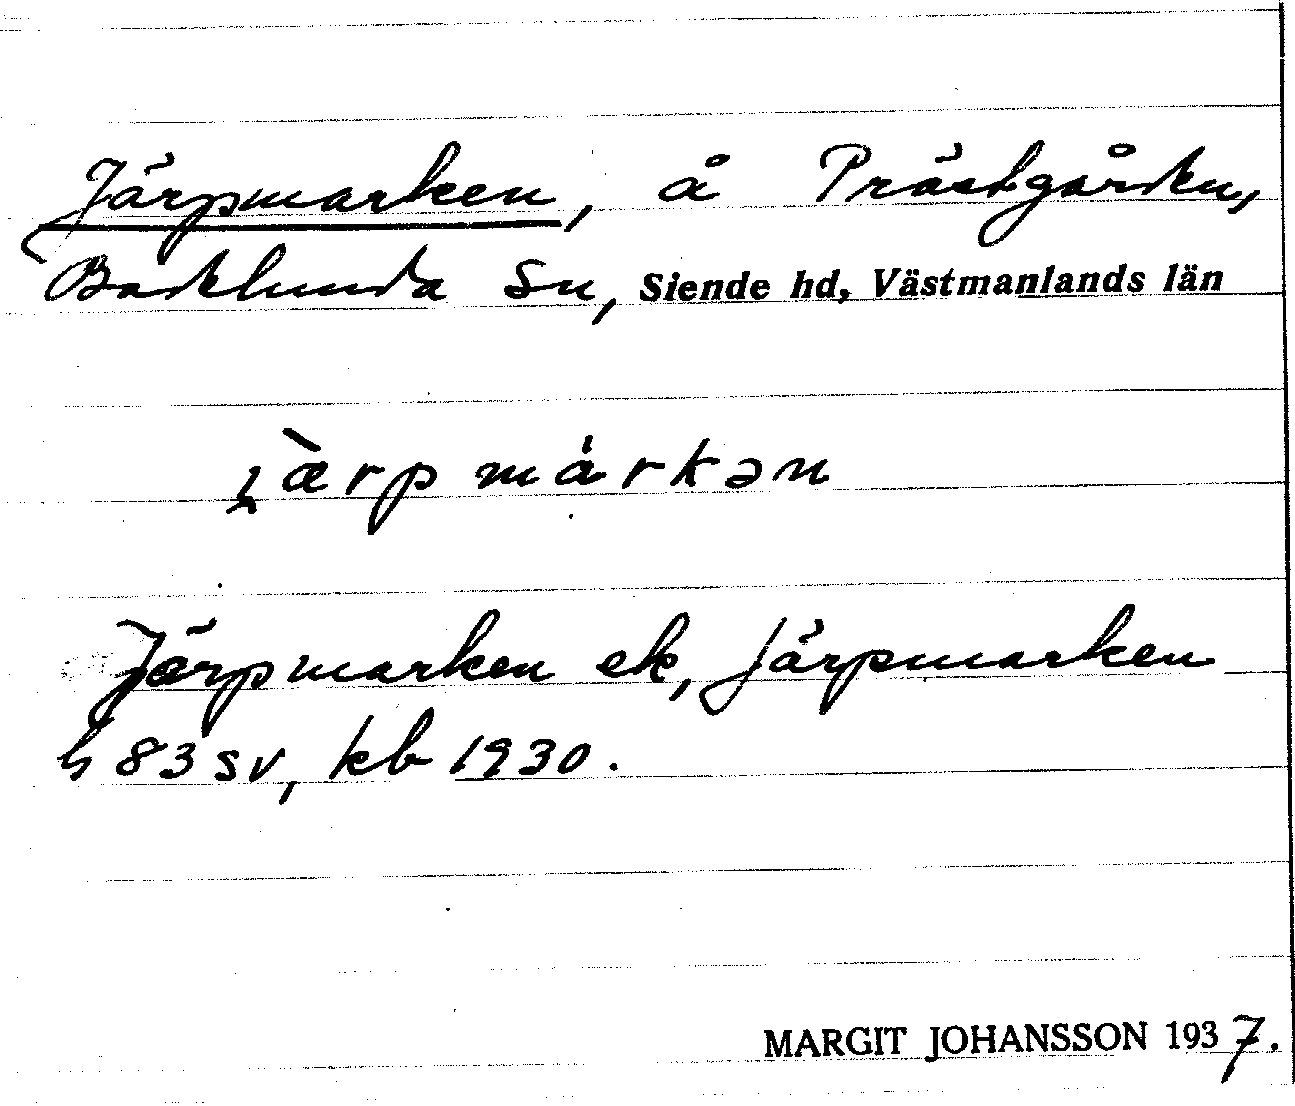 Järpmarken, å Prästgården,
Badelunda sn, Siende hd, Västmanlands län
jàrpmárkən
Järpmarken ek, Järpmarken
h 83 sv, kb 1930.
MARGIT JOHANSSON 1937.